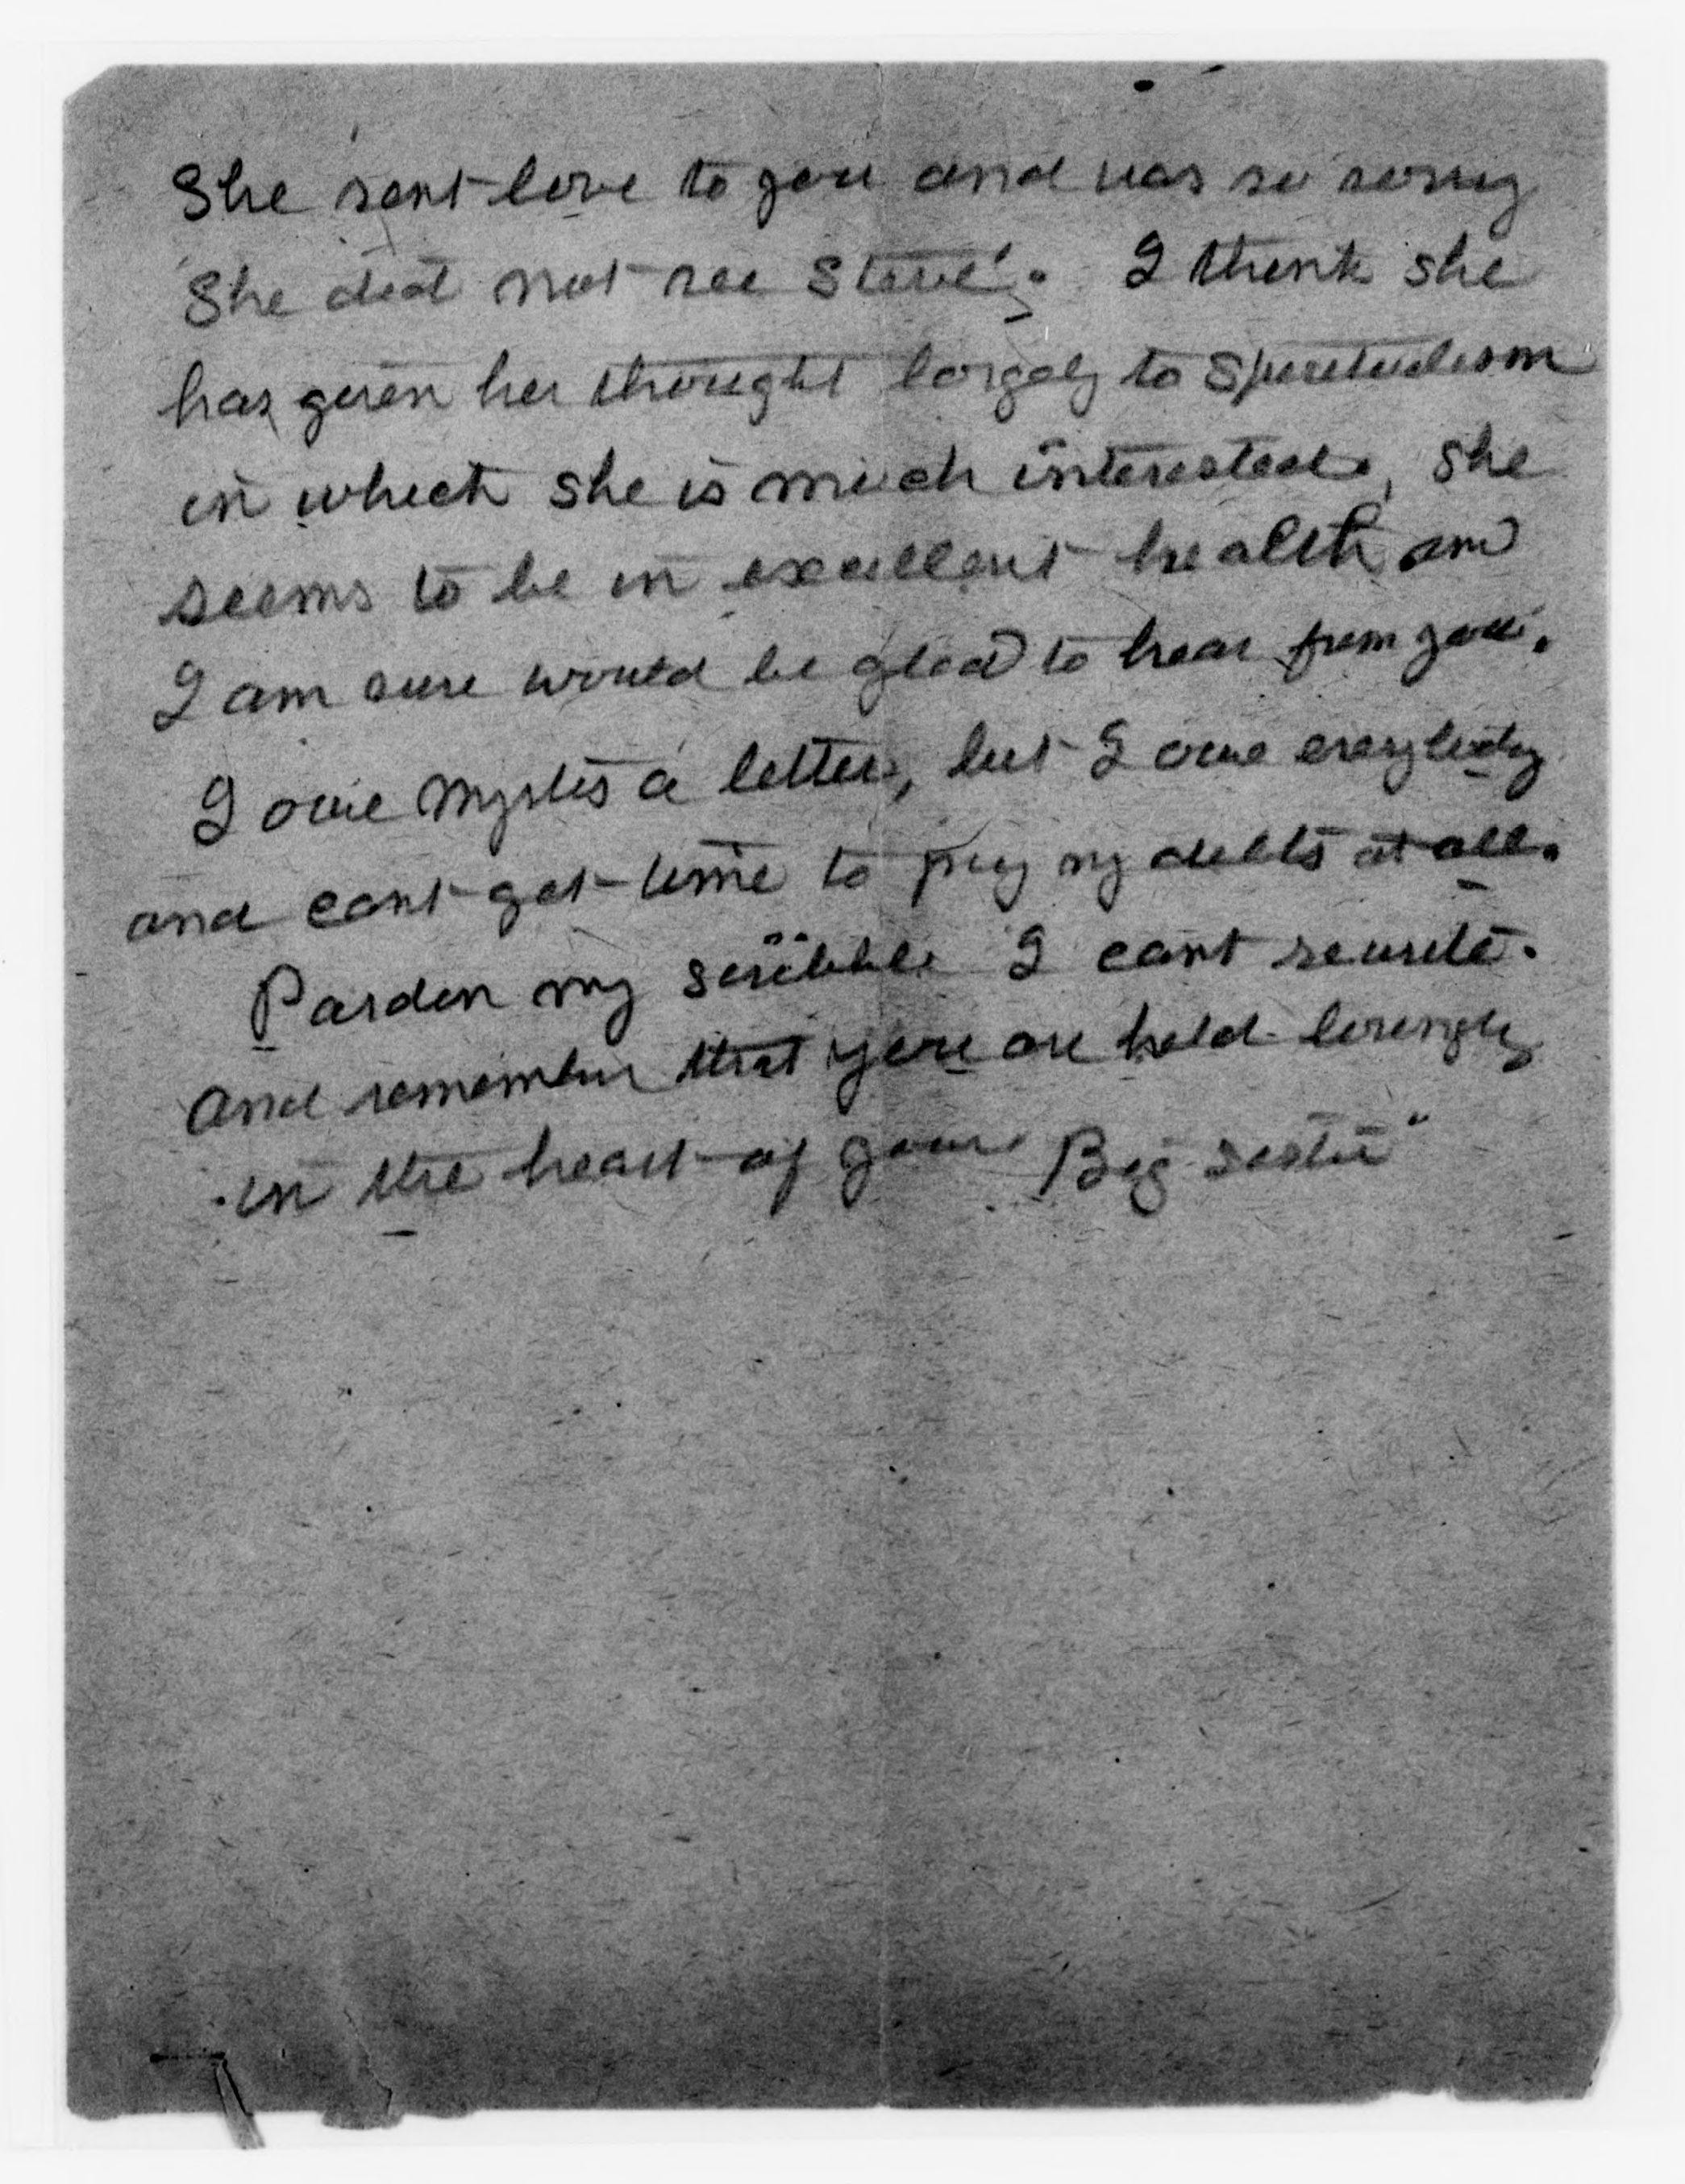 She sent love to you and was so sorry
She did not see Steve. I think she
has given her thought largely to Spiritulism
in which she is much interested, she
seems to be in excellent health and
I am sure would be glad to hear from you.
I owe Mystis a letter, but I owe everybody
and cant get time to pay my debts at all.
Pardon my scribble I cant rewrite.
And remember that you are held lovingly
in the heart of your Big sister"